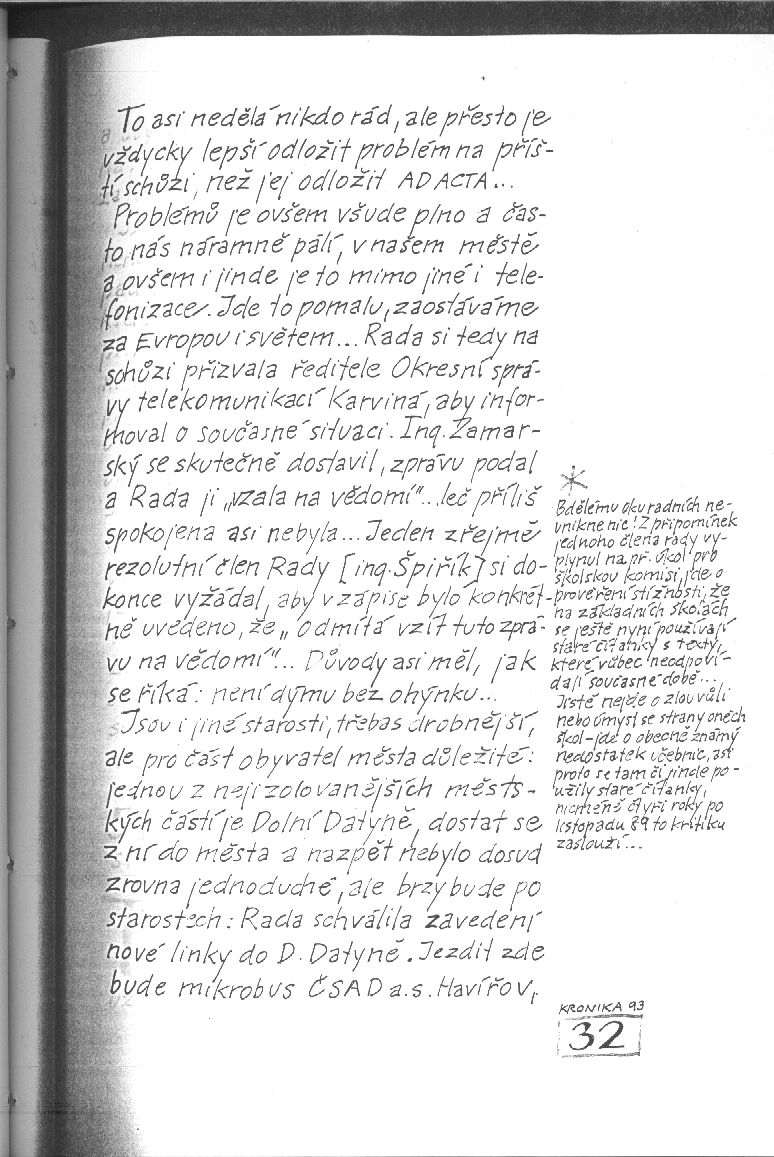 To asi nedělá nikdo rád, ale přesto je
vždycky lepší odložit problém na příš-
tí schůzi, než jej odložit AD ACTA...
Problémů je ovšem všude plno a čas-
to nás náramně pálí, v našem městě
a ovšem i jinde je to mimo jiné i tele-
fonizace. Jde to pomalu, zaostáváme
za Evropou i světem... Rada si tedy na
schůzi přizvala ředitele Okresní sprá-
vy telekomunikací Karviná, aby infor-
moval o současné situaci. Ing. Zamar-
ský se skutečně dostavil, zprávu podal
a Rada ji „vzala na vědomí"... leč příliš
spokojena asi nebyla... Jeden zřejmě
rezolutní člen Rady [ing. Špiřík] si do-
konce vyžádal, aby v zápise bylo konkrét-
ně uvedeno, že „odmítá vzít tuto zprá-
vu na vědomí"... Důvody asi měl, jak
se říká: není dýmu bez ohýnku...
Jsou i jiné starosti, třebas drobnější,
ale pro část obyvatel města důležité:
jednou z nejizolovanějších měst-
kých částí je Dolní Datyně, dostat se
z ní do města a nazpět nebylo dosud
zrovna jednoduché, ale brzy bude po
starostech: Rada schválila zavedení
nové linky do D. Datyně. Jezdit zde
bude mikrobus ČSAD a.s. Havířov,
Bdělému oku radních ne-
unikne nic! Z připomínek
jednoho člena rady vy-
plynul na př. úkol pro
školskou komisi, jde o
prověření stížnosti, že
na základních školách
se ještě nyní používají
staré čítanky s texty,
které vůbec neodpoví-
dají současné době...
Jistě nejde o zlou vůli
nebo úmysl se strany oněch
škol - jde o obecně známý
nedostatek učebnic, asi
proto se tam či jinde po-
užily staré čítanky,
nicméně čtyři roky po
listopadu 89 to kritiku
zaslouží...
KRONIKA 93
32